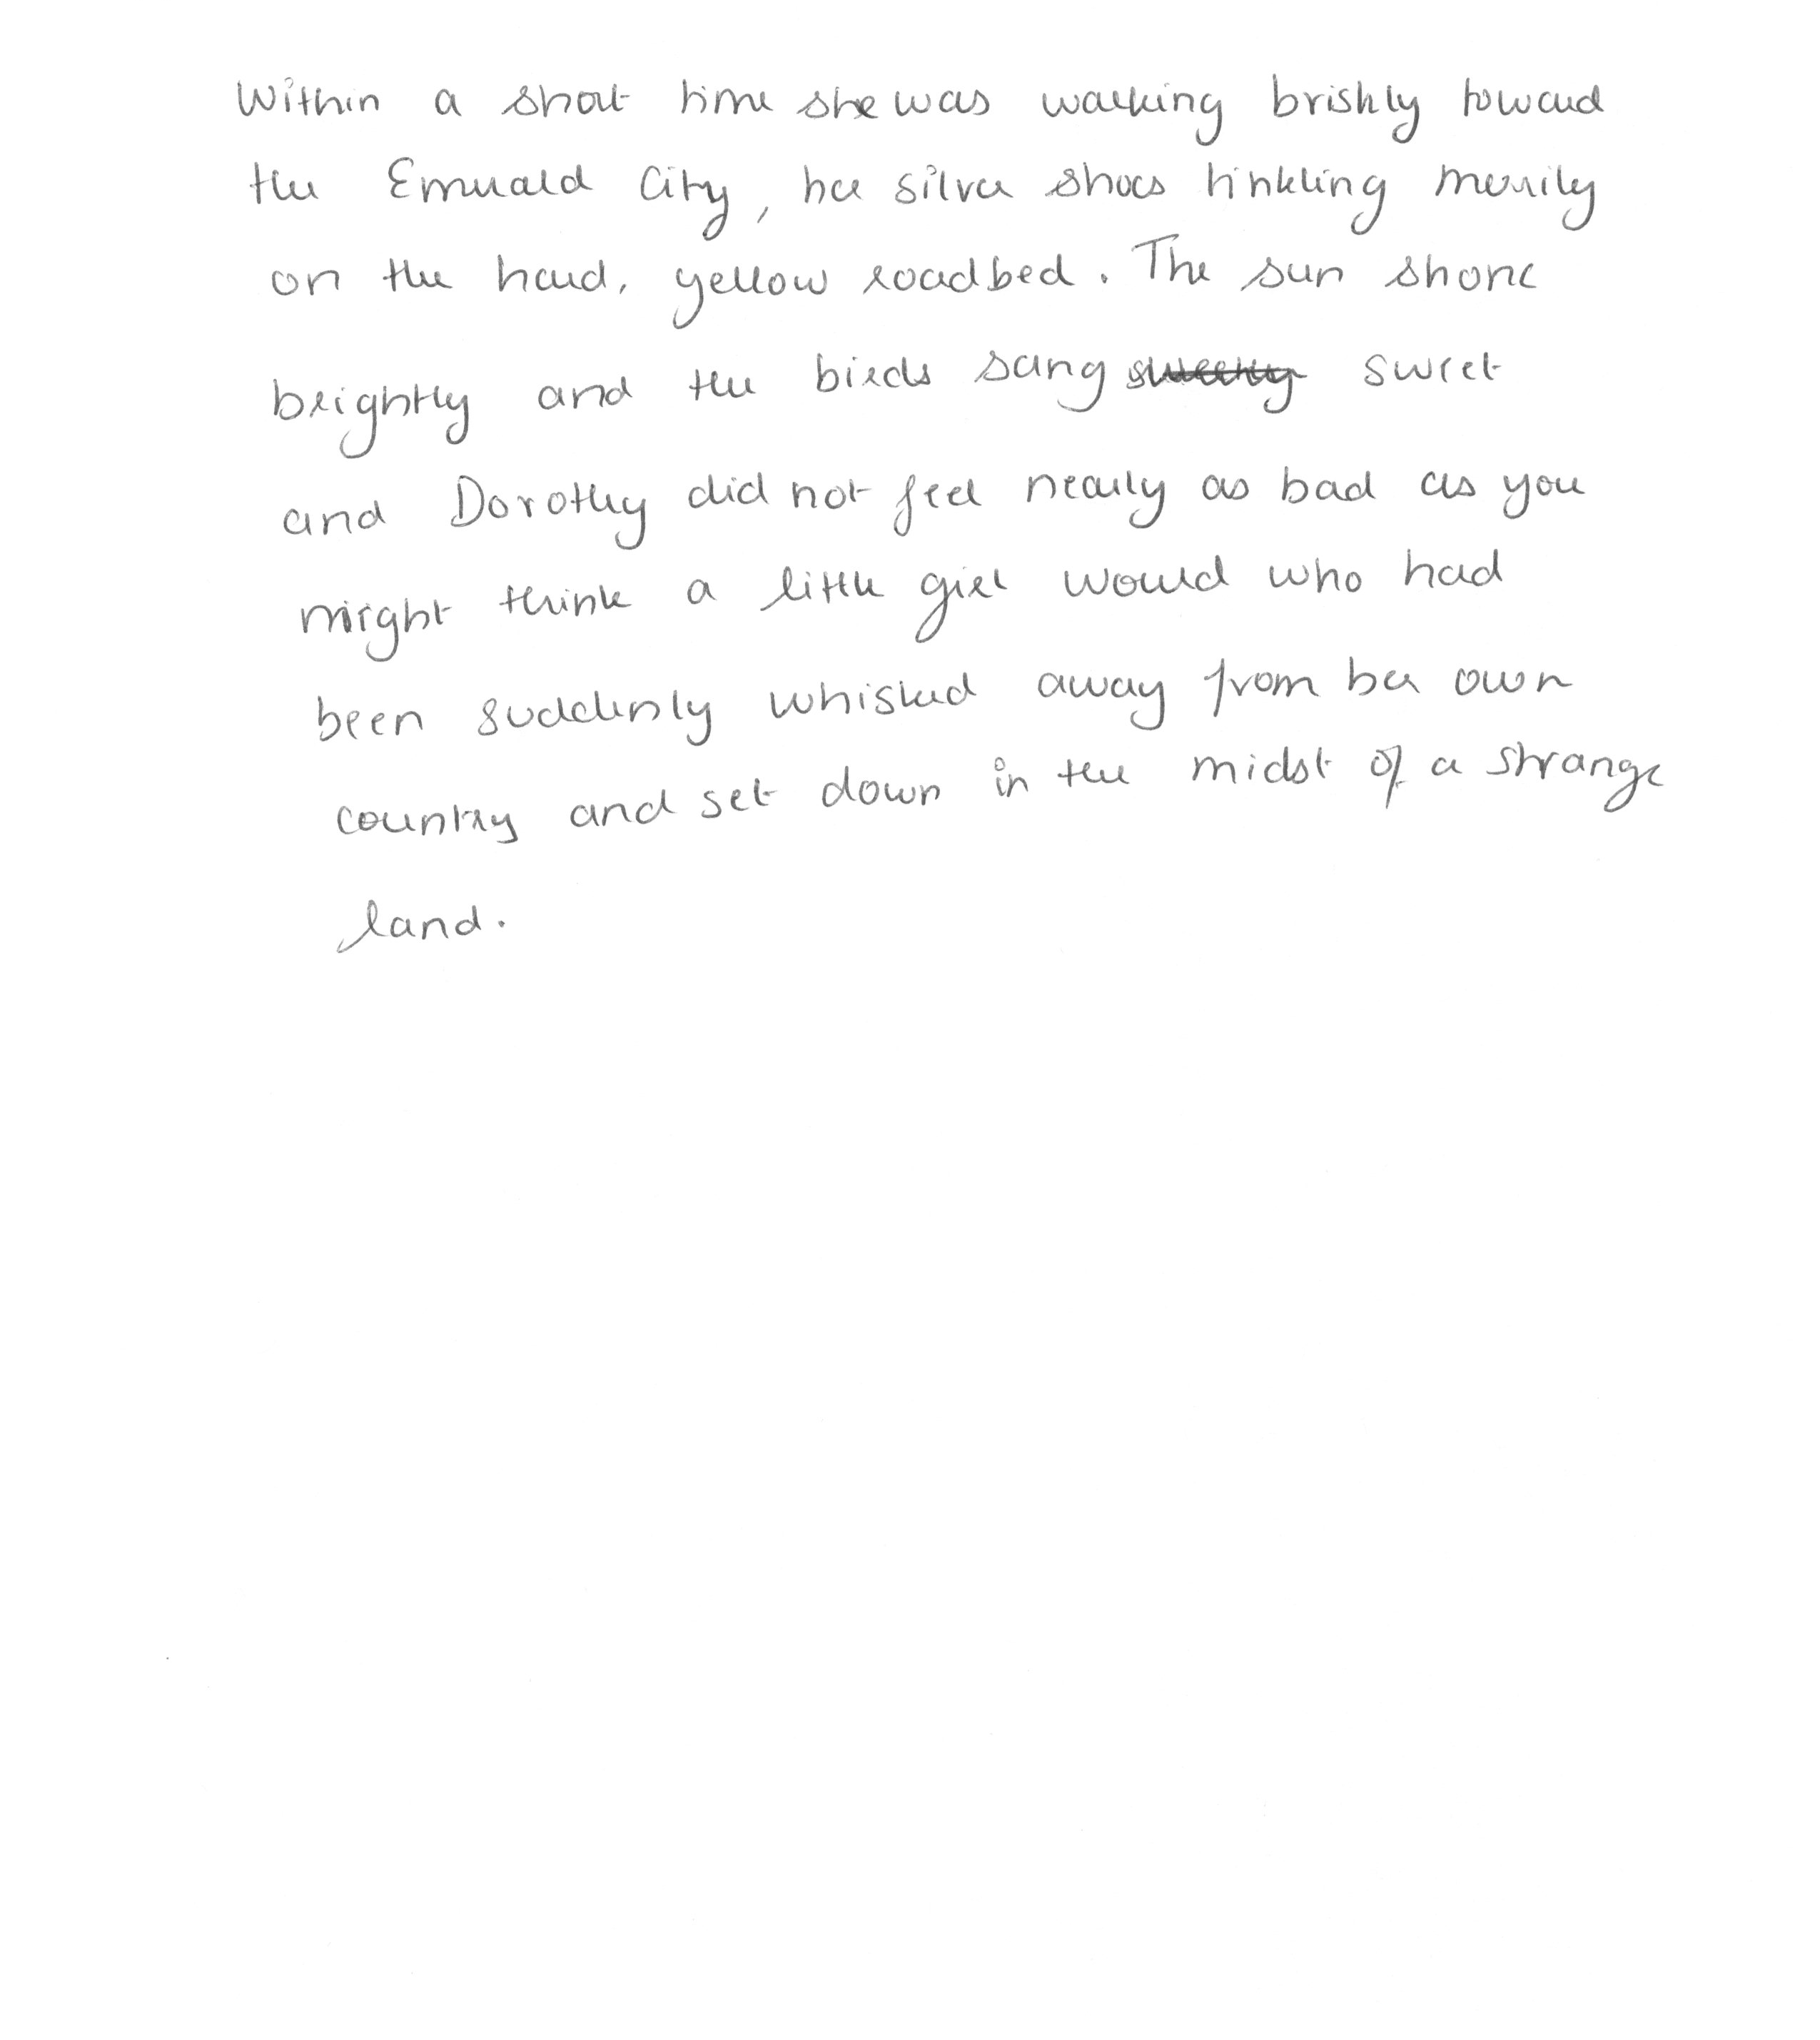 Within a short time she was walking briskly toward
the Emerald City, her silver shoes tinkling merrily
on the hard, yellow roadbed. The sun shone
brightly and the birds sang sweetly sweet
and Dorothy did not feel nearly as bad as you
might think a little girl would who had
been suddenly whisked away from her own
country and set down in the midst of a strange
land.